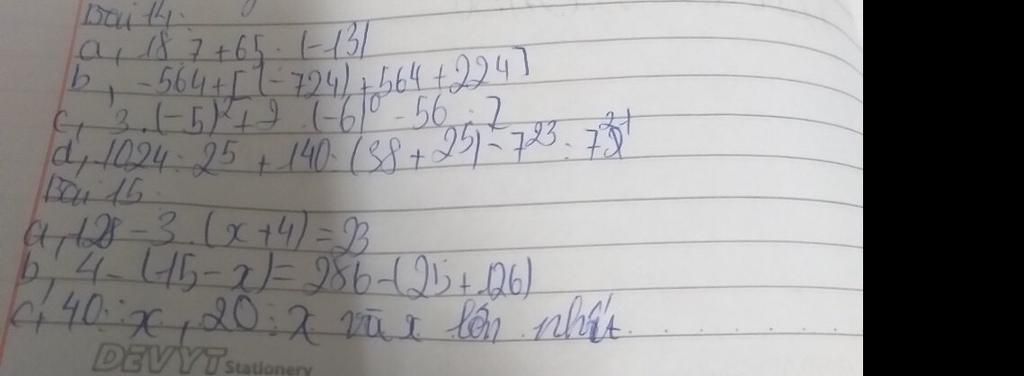 Bài 14:
a, 18.7+65:(-13)
b, -564+[(-724)+564+224]
c, 3.(-5)²+2.(-6)⁰-56:7
d, 1024:2⁵+140:(38+2⁵)-7²³:7²¹
Bài 15:
a, 128-3.(x+4)=23
b, 4-(15-x)=286-(25+126)
c, 40:x, 20:x và x lớn nhất.
DEVYT Stationery